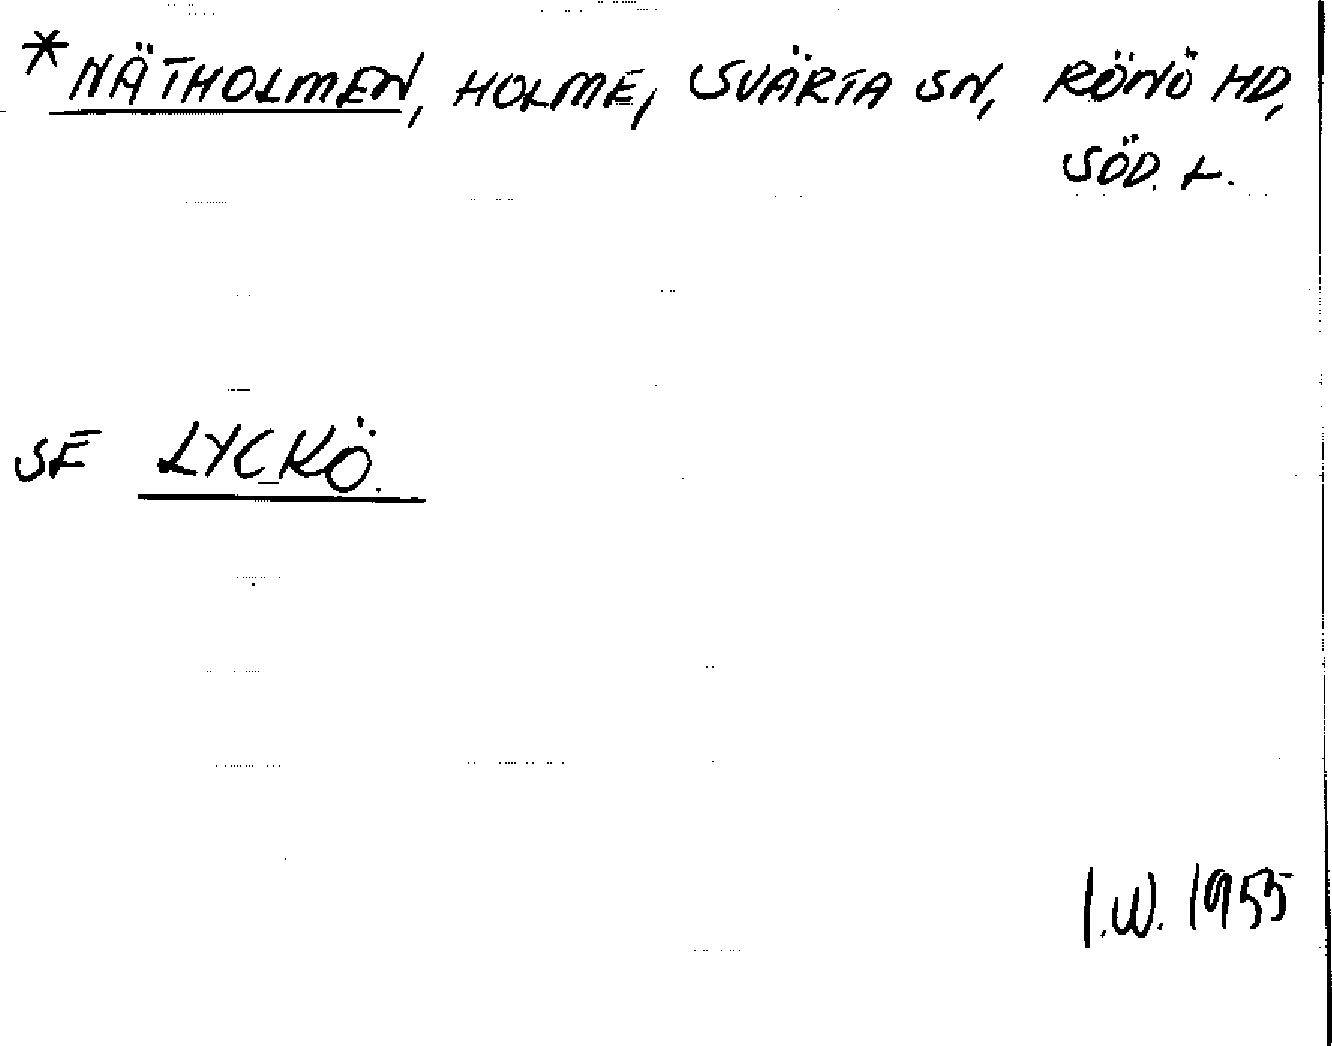 *NÄTHOLMEN, HOLME, SVÄRTA SN, RÖNÖ HD,
SÖD. L.
SE LYCKÖ.
I.W. 1955